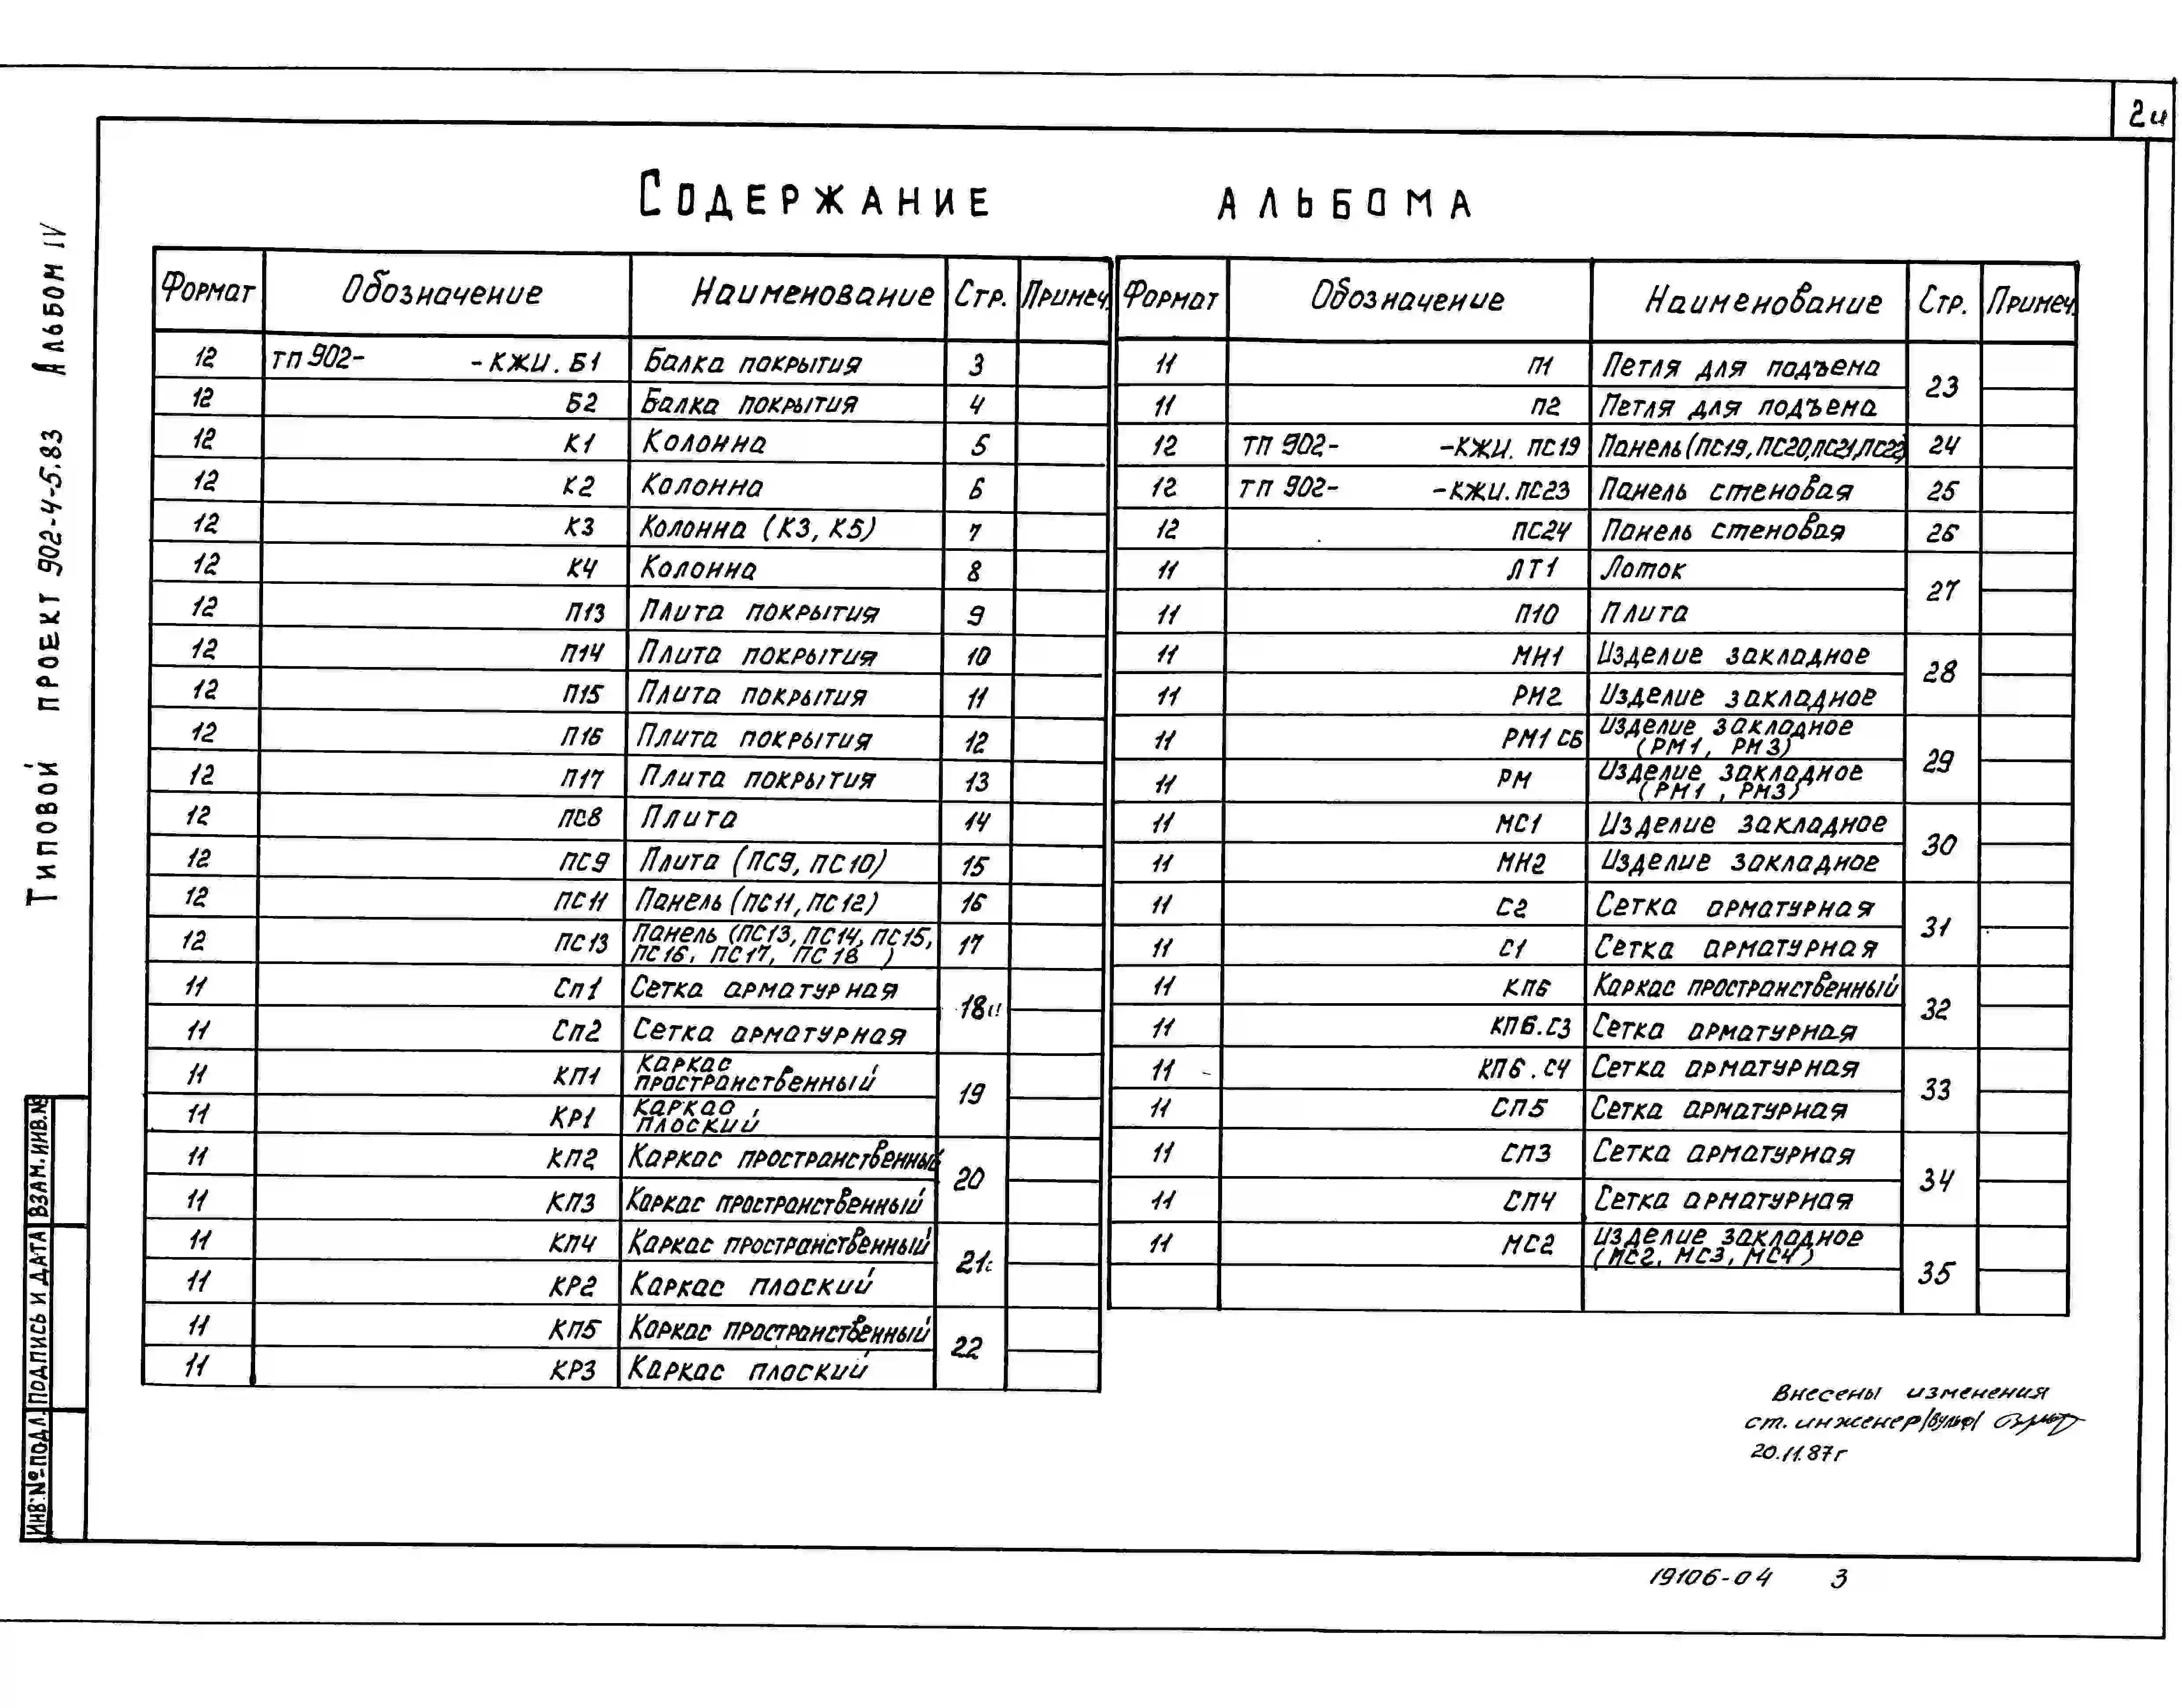 2и
Содержание альбома
Типовой проект 902-4-5.83 Альбом IV
Формат Обозначение Наименование Стр. Примеч.
12 ТП 902- -КЖИ. Б1 Балка покрытия 3
12 Б2 Балка покрытия 4
12 К1 Колонна 5
12 К2 Колонна 6
12 К3 Колонна (К3, К5) 7
12 К4 Колонна 8
12 П13 Плита покрытия 9
12 П14 Плита покрытия 10
12 П15 Плита покрытия 11
12 П16 Плита покрытия 12
12 П17 Плита покрытия 13
12 ПС8 Плита 14
12 ПС9 Плита (ПС9, ПС10) 15
12 ПС11 Панель (ПС11, ПС12) 16
12 ПС13 Панель (ПС13, ПС14, ПС15,
ПС16, ПС17, ПС18) 17
11 Сп1 Сетка арматурная 18и
11 Сп2 Сетка арматурная
11 КП1 Каркас
пространственный 19
11 КР1 Каркас
плоский
11 КП2 Каркас пространственный 20
11 КП3 Каркас пространственный
11 КП4 Каркас пространственный 21
11 КР2 Каркас плоский
11 КП5 Каркас пространственный 22
11 КР3 Каркас плоский
Формат Обозначение Наименование Стр. Примеч.
11 П1 Петля для подъема 23
11 П2 Петля для подъема
12 ТП 902- -КЖИ. ПС19 Панель (ПС19, ПС20, ПС21, ПС22) 24
12 ТП 902- -КЖИ. ПС23 Панель стеновая 25
12 ПС24 Панель стеновая 26
11 ЛТ1 Лоток 27
11 П10 Плита
11 МН1 Изделие закладное 28
11 РМ2 Изделие закладное
11 РМ1 СБ Изделие закладное
(РМ1, РМ3) 29
11 РМ Изделие закладное
(РМ1, РМ3)
11 МС1 Изделие закладное 30
11 МН2 Изделие закладное
11 С2 Сетка арматурная 31
11 С1 Сетка арматурная
11 КП6 Каркас пространственный 32
11 КП6.С3 Сетка арматурная
11 КП6.С4 Сетка арматурная 33
11 СП5 Сетка арматурная
11 СП3 Сетка арматурная 34
11 СП4 Сетка арматурная
11 МС2 Изделие закладное
(МС2, МС3, МС4) 35
Внесены изменения
ст. инженер /Вульф/
20.11.87г
ИНВ.№ ПОДЛ. ПОДПИСЬ И ДАТА ВЗАМ.ИНВ.№
19106-04 3